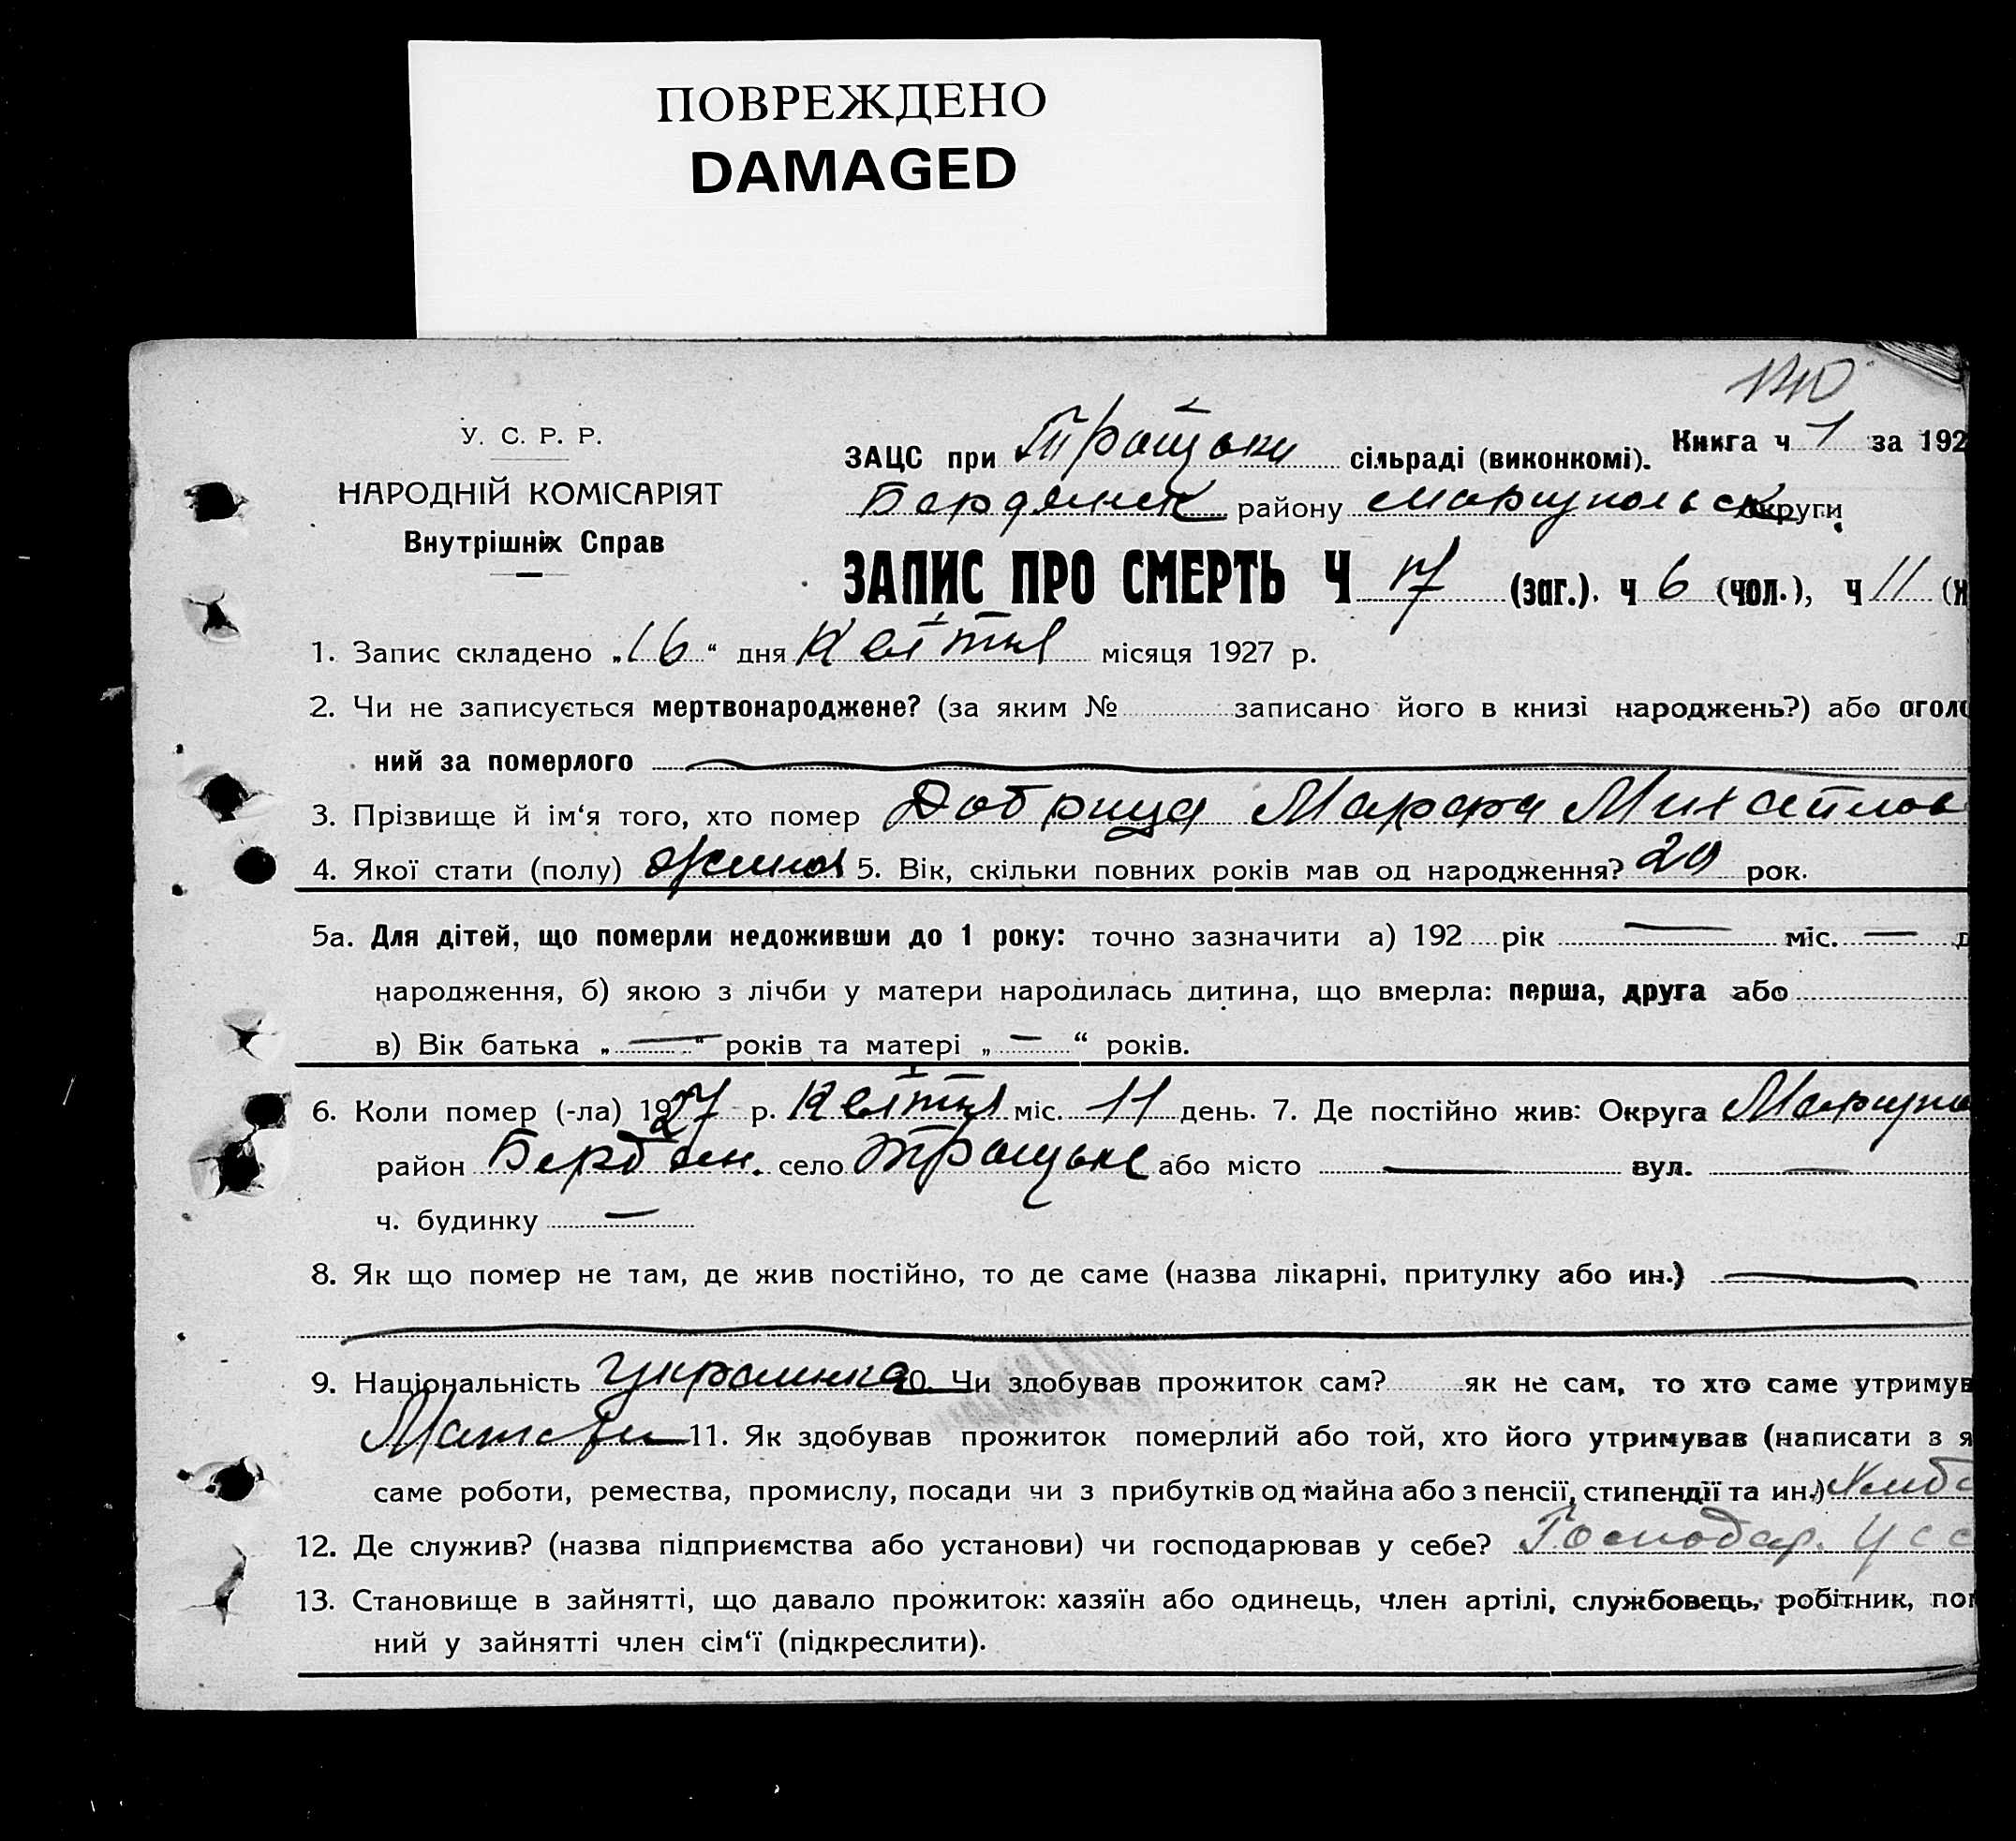 ПОВРЕЖДЕНО
DAMAGED
140
У. С. Р. Р.
НАРОДНІЙ КОМІСАРІЯТ
Внутрішніх Справ
ЗАЦС при Троцьки сільраді (виконкомі). Книга ч 1 за 192
Бердянск району Мариупольск округи
ЗАПИС ПРО СМЕРТЬ Ч 17 (заг.). ч 6 (чол.), ч 11 (ж
1. Запис складено „16“ дня Квітня місяця 1927 р.
2. Чи не записується мертвонароджене? (за яким № записано його в книзі народжень?) або оголо
ний за померлого
3. Прізвище й ім‘я того, хто помер Добрица Марфа Михайлов
4. Якої стати (полу) 5. Вік, скільки повних років мав од народження? 29 рок.
5а. Для дітей, що померли недоживши до 1 року: точно зазначити а) 192 рік — міс. — д
народження, б) якою з лічби у матери народилась дитина, що вмерла: перша, друга або
в) Вік батька „—“ років та матері „—“ років.
6. Коли помер (-ла) 1927 р. Квітня міс. 11 день. 7. Де постійно жив: Округа Мариупо
район Бердян. село Троцьке або місто — вул. —
ч. будинку —
8. Як що помер не там, де жив постійно, то де саме (назва лікарні, притулку або ин.) —
9. Національність Украинка 10. Чи здобував прожиток сам? як не сам, то хто саме утримув
11. Як здобував прожиток померлий або той, хто його утримував (написати з я
саме роботи, ремества, промислу, посади чи з прибутків од майна або з пенсії, стипендії та ин.) Хлібо
12. Де служив? (назва підприємства або установи) чи господарював у себе? Господар. у се
13. Становище в зайнятті, що давало прожиток: хазяїн або одинець, член артілі, службовець, робітник, пом
ний у зайнятті член сім‘ї (підкреслити).